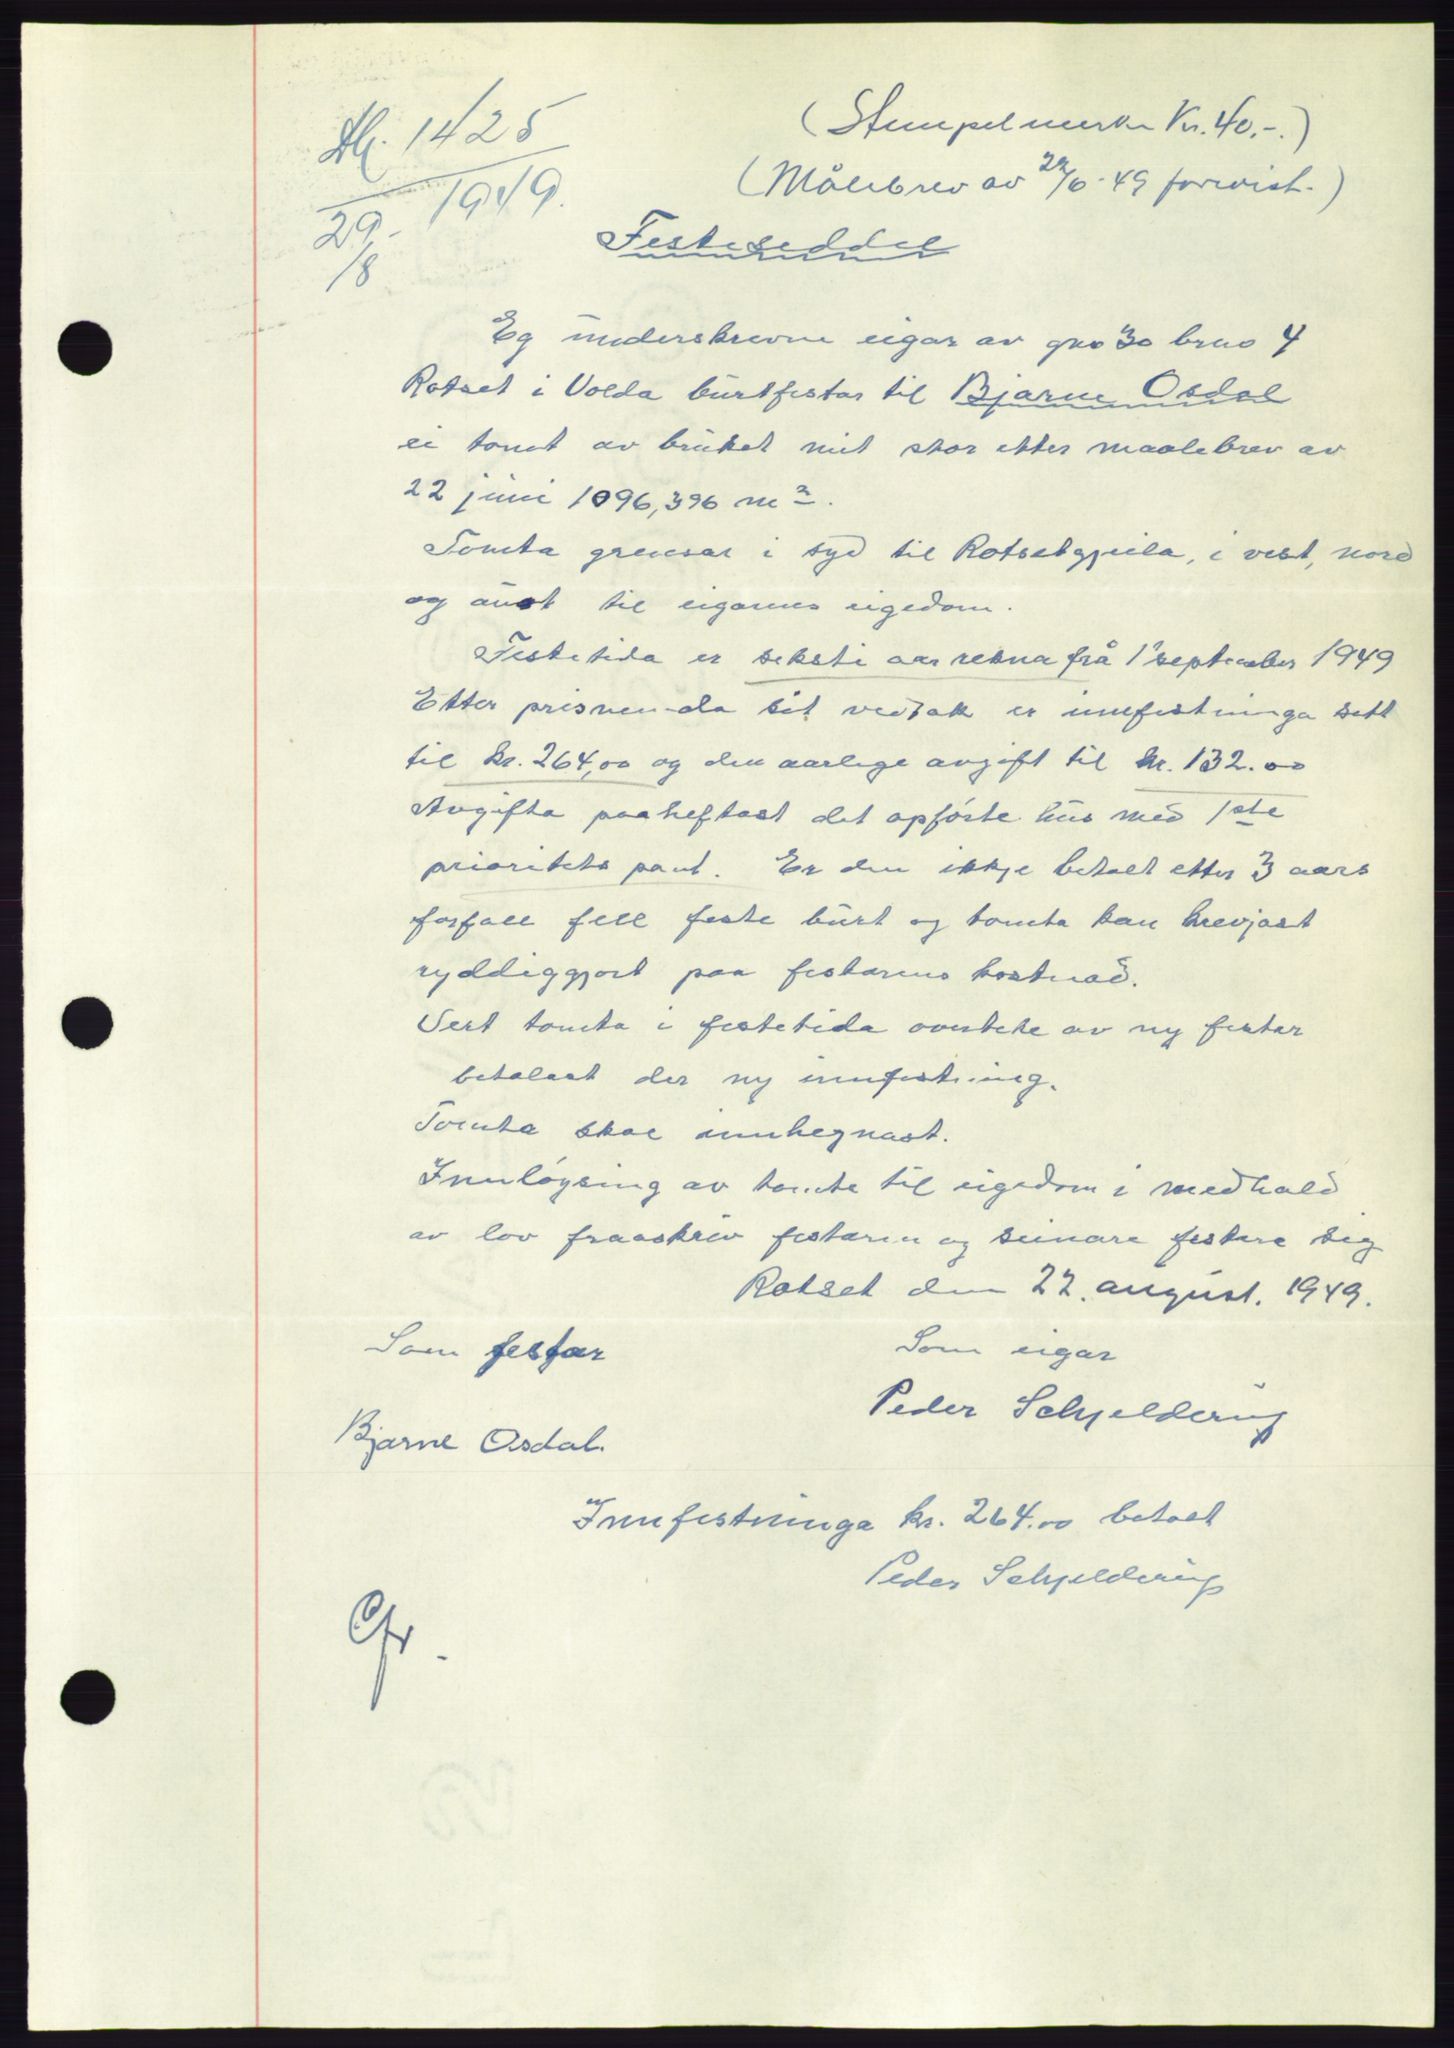 1425
1949.
29.
/8
(Stempelmerke Kr. 40.-.)
(Målebrev av 22/6-49 forevist.)
Festeseddel
Eg underskrevne eigar av gno 30 bruo 4
Rotset i Volda burtfestar til Bjarne Osdal
ei tomt av bruket mit stor etter maalebrev av
22 juni 1096,396 m2.
Tomta grensar i syd til Rotsetgjeila, i vest, nord
og aust til eigarens eigedom.
Festetida er seksti aar rekna frå 1' september 1949
Etter prisnemda sit vedtak er innfestninga sett
til kr. 264,00 og den aarlege avgift til kr. 132.00
Avgifta paaheftast det opførte hus med 1ste
prioritets pant. Er den ikkje betalt etter 3 aars
forfall fell feste burt og tomta kan krevjast
ryddiggjort paa festarens kostnad.
Vert tomta i festetida overteke av ny festar
betalast der ny innfestning.
Tomta skal innhegnast.
Innløysing av tomta til eigedom i medhald
av lov fraaskriv festaren og seinare festere sig
Rotset den 22. august. 1949.
Som festar
Som eigar
Peder Schjelderup
Bjarne Osdal.
Innfestninga kr. 264.00 betalt
Peder Schjelderup